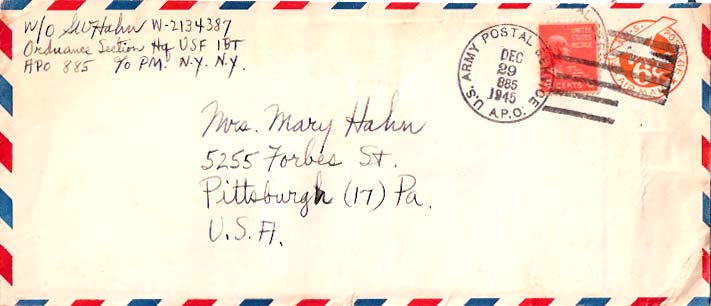 W/O SW Hahn W-2134387
Ordnance Section Hq USF IBT
APO 885 c/o P.M. N.Y. N.Y.
U.S. ARMY POSTAL SERVICE
DEC
29
885
1945
A.P.O.
UNITED STATES
POSTAGE
CENTS
6¢
Mrs. Mary Hahn
5255 Forbes St.
Pittsburgh (17) Pa.
U.S.A.